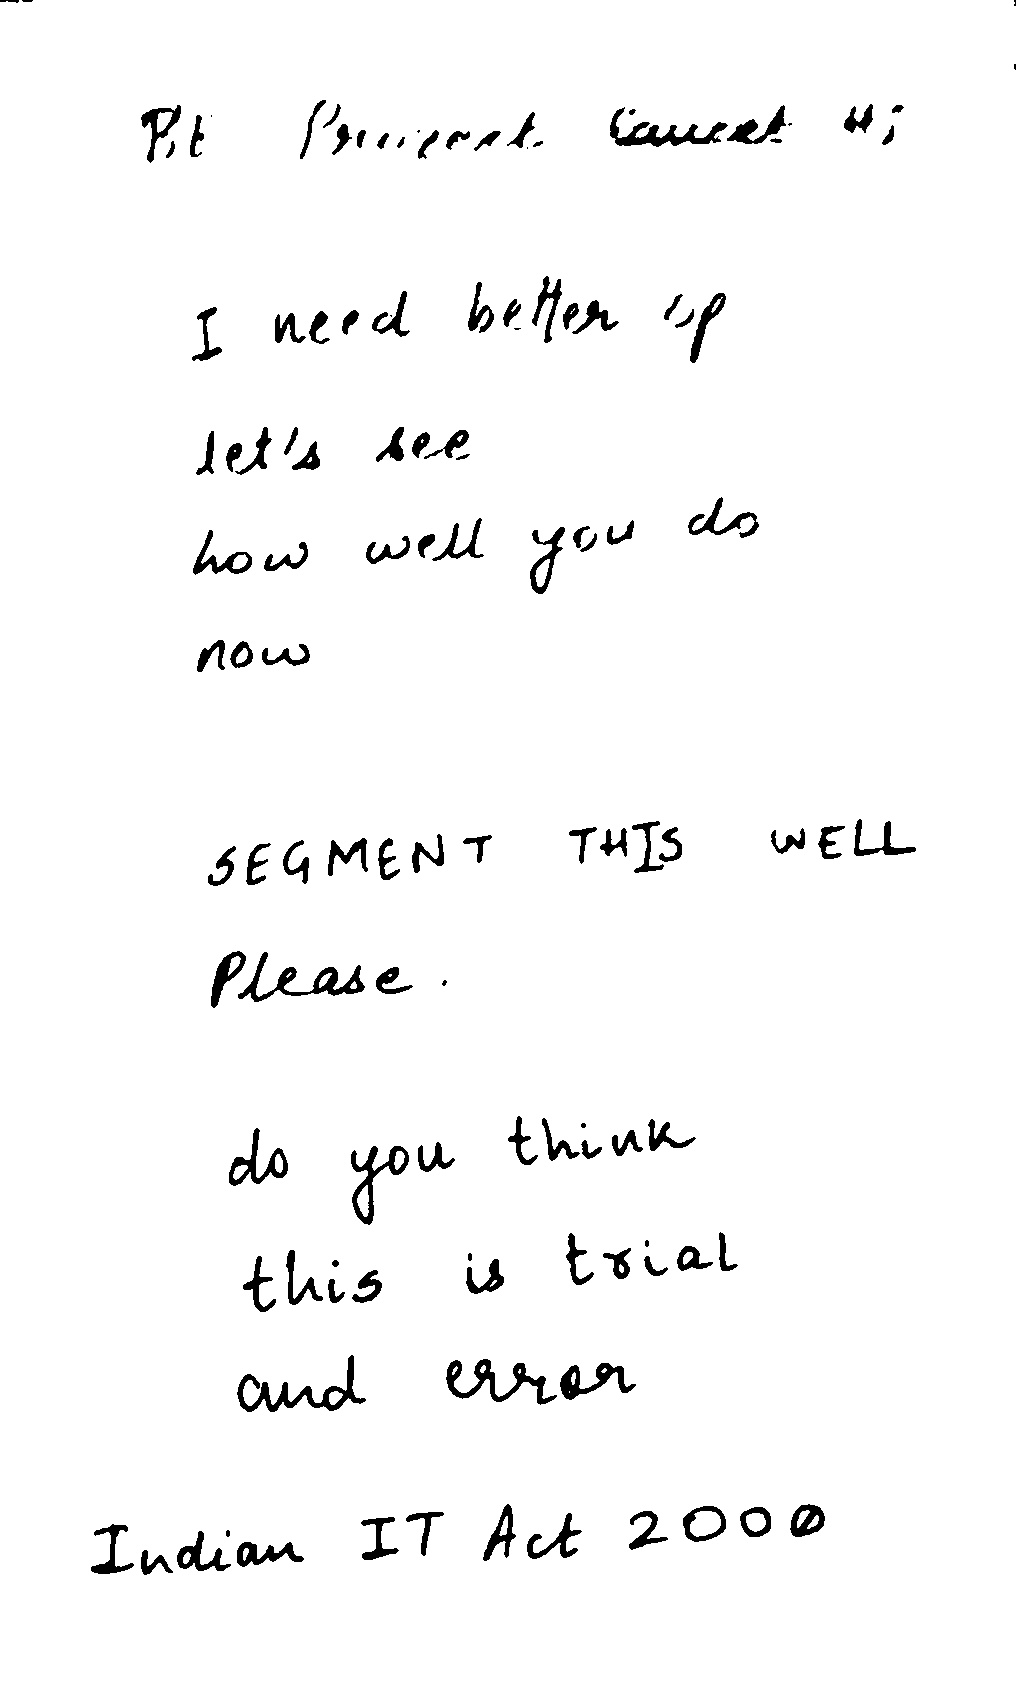 I need better
let's see
how well you do
now
SEGMENT THIS WELL
Please.
do you think
this is trial
and error
Indian IT Act 2000